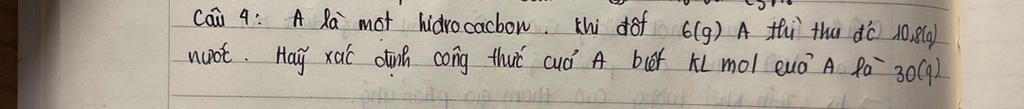 Câu 4: A là một hidrocacbon. Khi đốt 6(g) A thì thu đc 10,8(g)
nước. Hãy xác định công thức của A biết KL mol của A là 30(g)